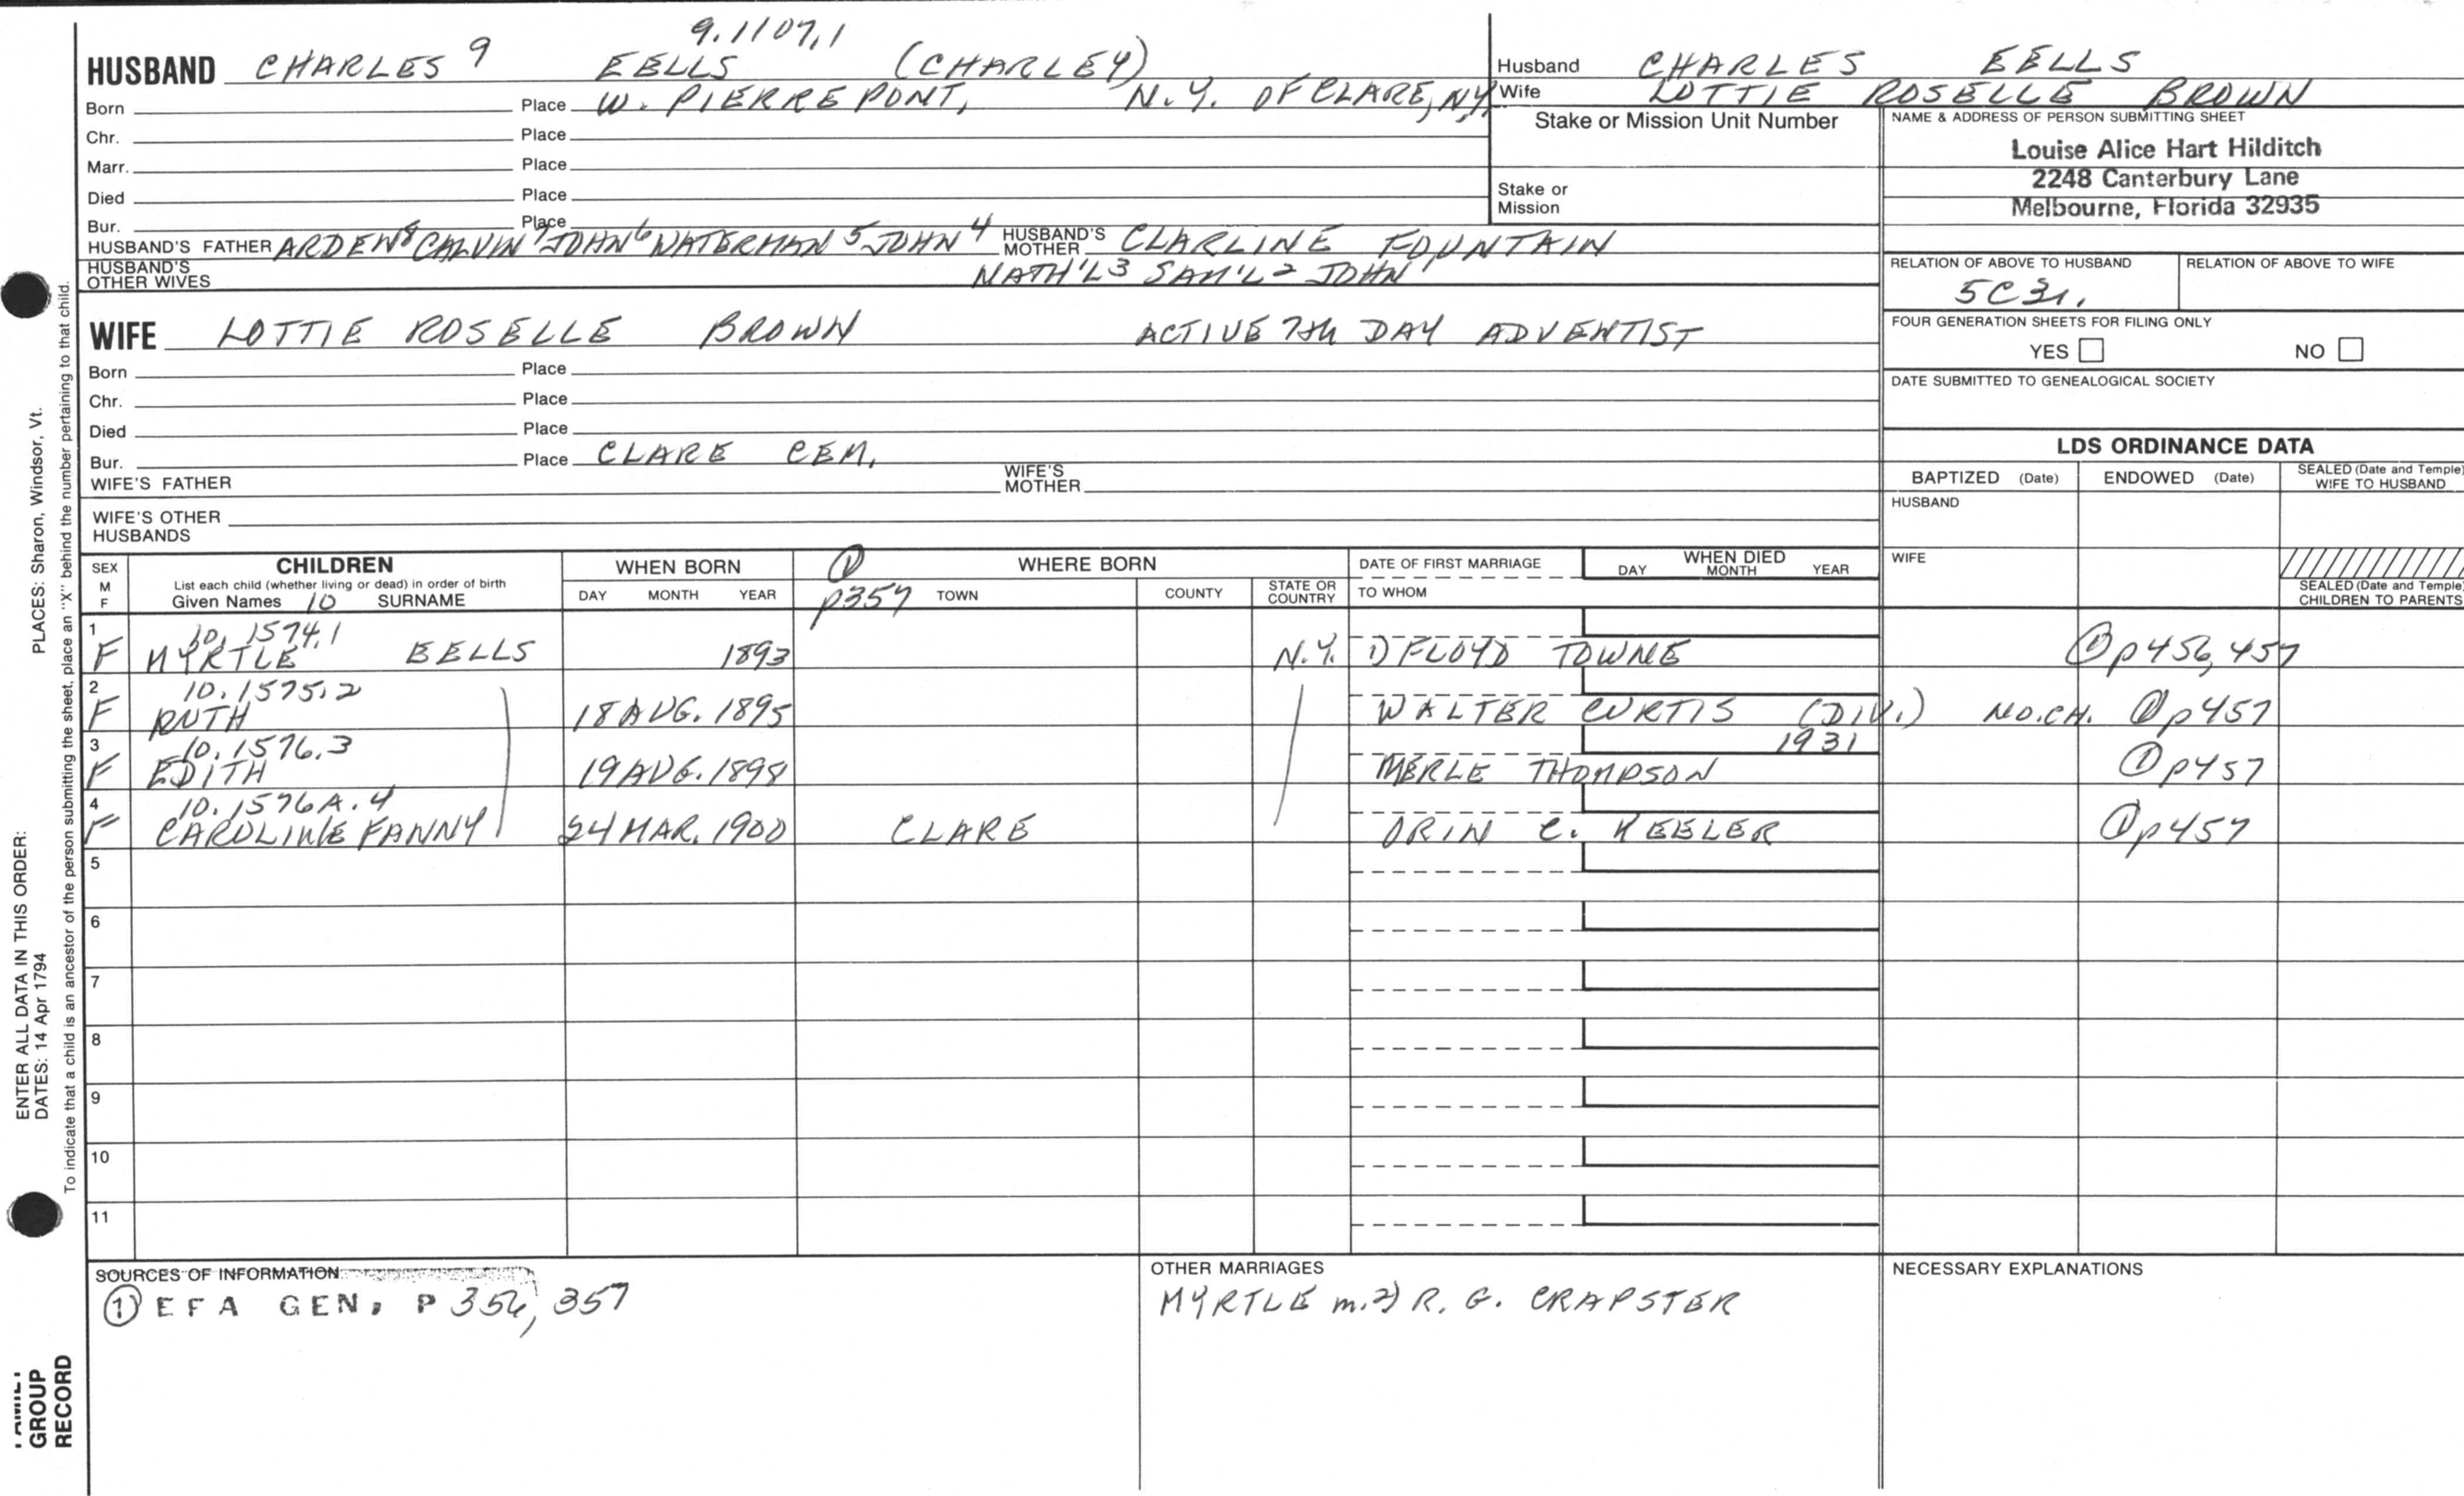 9.1107.1
HUSBAND CHARLES 9 EELLS (CHARLEY)
Born Place W. PIERREPONT, N.Y. OF CLARE, NY.
Chr. Place
Marr. Place
Died Place
Bur. Place
HUSBAND'S FATHER ARDEN 8 CALVIN 7 JOHN 6 WATERMAN 5 JOHN 4 HUSBAND'S MOTHER CLARLINE FOUNTAIN
HUSBAND'S OTHER WIVES NATH'L 3 SAM'L 2 JOHN 1
WIFE LOTTIE ROSELLE BROWN ACTIVE 7th DAY ADVENTIST
Born Place
Chr. Place
Died Place
Bur. Place CLARE CEM.
WIFE'S FATHER WIFE'S MOTHER
WIFE'S OTHER HUSBANDS
Husband CHARLES EELLS
Wife LOTTIE ROSELLE BROWN
Stake or Mission Unit Number
Stake or Mission
NAME & ADDRESS OF PERSON SUBMITTING SHEET
Louise Alice Hart Hilditch
2248 Canterbury Lane
Melbourne, Florida 32935
RELATION OF ABOVE TO HUSBAND RELATION OF ABOVE TO WIFE
5C3r.
FOUR GENERATION SHEETS FOR FILING ONLY
YES NO
DATE SUBMITTED TO GENEALOGICAL SOCIETY
LDS ORDINANCE DATA
BAPTIZED (Date) ENDOWED (Date) SEALED (Date and Temple) WIFE TO HUSBAND
HUSBAND
WIFE
SEALED (Date and Temple) CHILDREN TO PARENTS
SEX M F
CHILDREN
List each child (whether living or dead) in order of birth
Given Names 10 SURNAME
WHEN BORN
DAY MONTH YEAR
① p357
WHERE BORN
TOWN COUNTY STATE OR COUNTRY
DATE OF FIRST MARRIAGE
TO WHOM
WHEN DIED
DAY MONTH YEAR
1 10.1574.1
F MYRTLE EELLS 1893 N.Y. 1) FLOYD TOWNE ① p456, 457
2 10.1575.2
F RUTH 18 AUG. 1895 WALTER CURTIS (DIV.) NO.CH. ① p457
3 10.1576.3 1931
F EDITH 19 AUG. 1898 MERLE THOMPSON ① p457
4 10.1576A.4
F CAROLINE FANNY 24 MAR. 1900 CLARE ORIN C. KEELER ① p457
5
6
7
8
9
10
11
SOURCES OF INFORMATION
① EFA GEN. P 356, 357
OTHER MARRIAGES
MYRTLE m. 2) R. G. CRAPSTER
NECESSARY EXPLANATIONS
ENTER ALL DATA IN THIS ORDER:
DATES: 14 Apr 1794 PLACES: Sharon, Windsor, Vt.
To indicate that a child is an ancestor of the person submitting the sheet, place an "X" behind the number pertaining to that child.
FAMILY
GROUP
RECORD